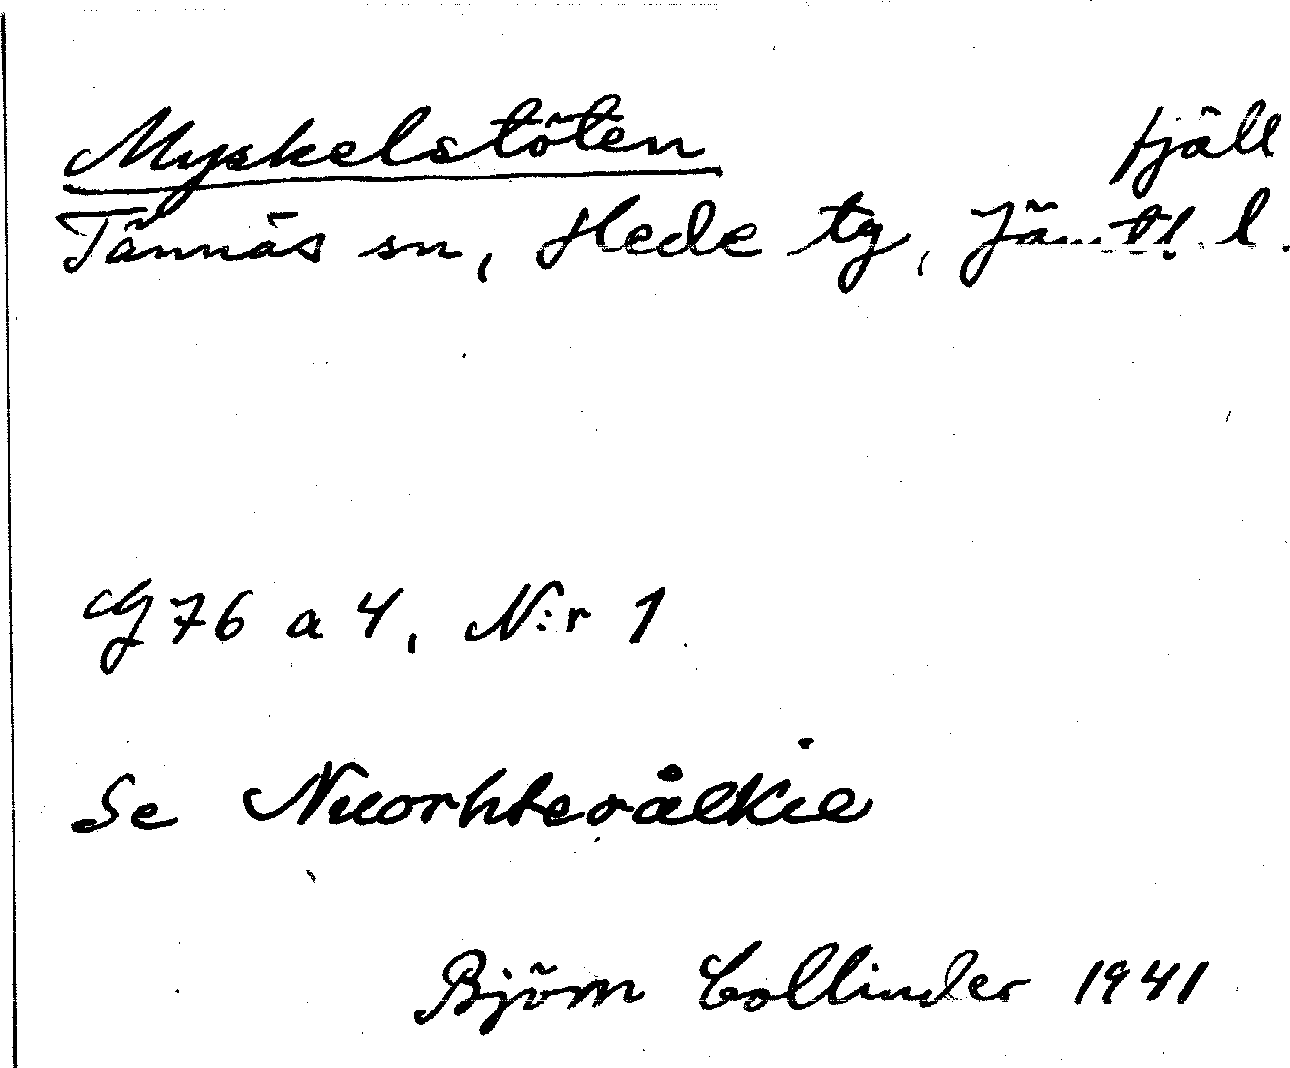 Myskelstöten fjäll
Tännäs sn, Hede tg, Jämtl. l.
G 76 a 4, N:r 1
Se
Björn Collinder 1941